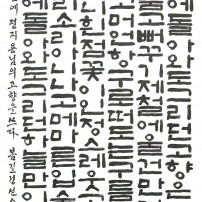 에돌아와도그리던고향은
품고뻐꾸기제철에울건만
고머언항구로떠도는구름
흰점꽃이인정스레웃
소리아니나고메마른입술
에돌아와도그리던하늘만
에 정지용님의 고향을 쓰다 봄길